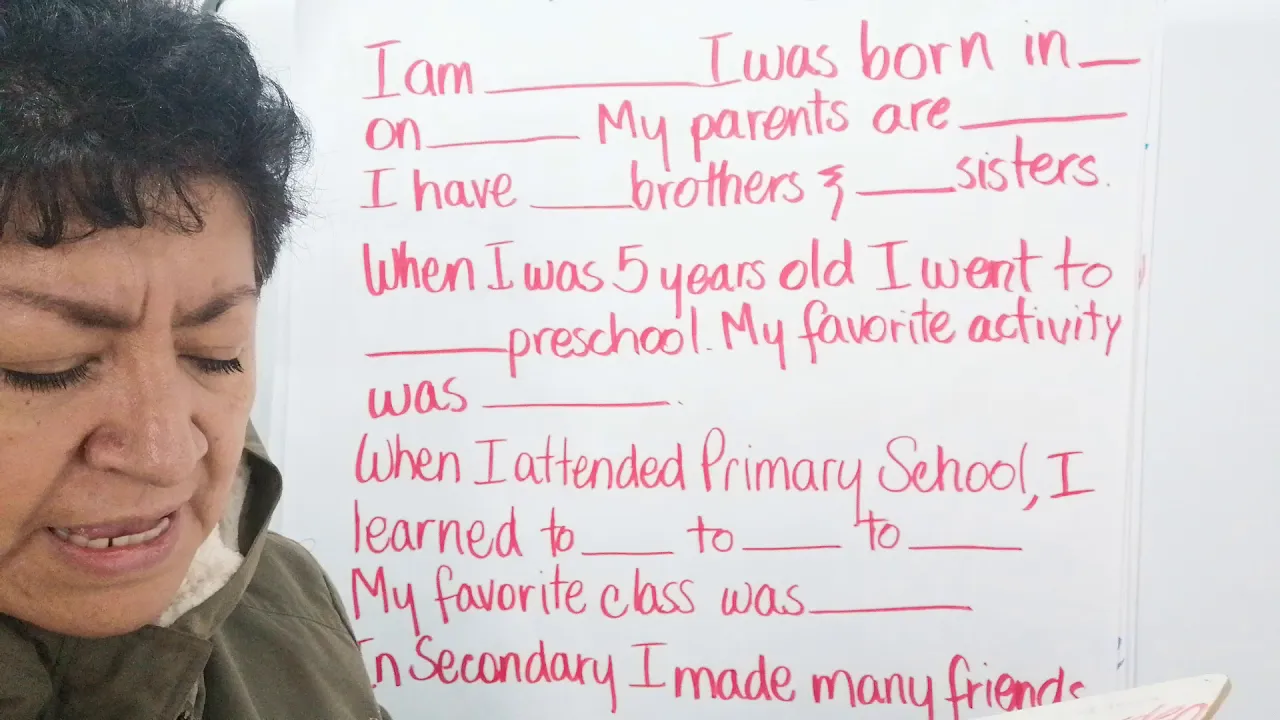 I am ________ I was born in __
on ______ My parents are ______
I have ____ brothers & ____ sisters.
When I was 5 years old I went to
______ preschool. My favorite activity
was ________.
When I attended Primary School, I
learned to ____ to ____ to ____
My favorite class was ______
In Secondary I made many friends